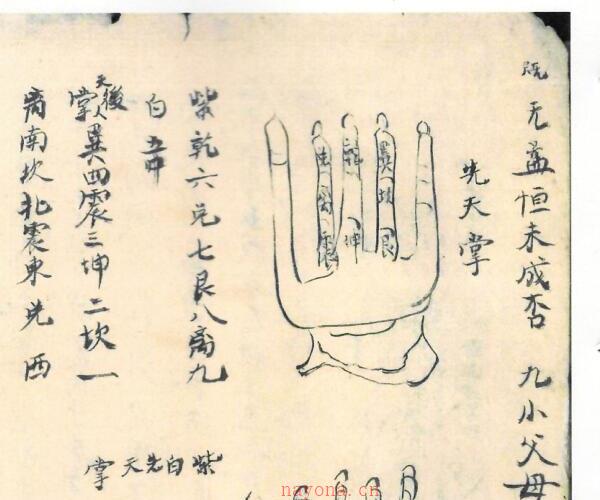 既无益恒未咸否 九小父母
先天掌
巽坎艮
乾坤
兑离震
紫乾六兑七艮八离九
白五中
後天掌巽四震三坤二坎一
离南坎北震東兑西
紫白先天掌
nayona.cn